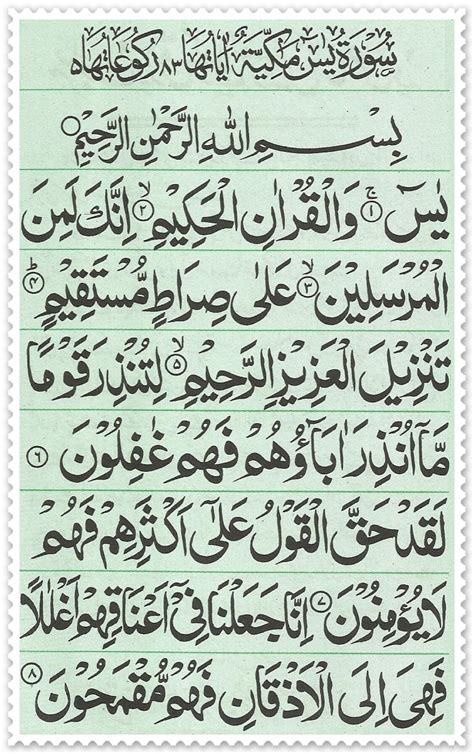 سُوْرَةُ يٰسٓ مَكِّيَّةٌ اٰيَاتُهَا ٨٣ رُكُوْعَاتُهَا ٥
بِسْمِ اللهِ الرَّحْمٰنِ الرَّحِيْمِ
يٰسٓ ۚ ﴿١﴾ وَالْقُرْاٰنِ الْحَكِيْمِ ۙ ﴿٢﴾ اِنَّكَ لَمِنَ
الْمُرْسَلِيْنَ ۙ ﴿٣﴾ عَلٰى صِرَاطٍ مُّسْتَقِيْمٍ ؕ ﴿٤﴾
تَنْزِيْلَ الْعَزِيْزِ الرَّحِيْمِ ۙ ﴿٥﴾ لِتُنْذِرَ قَوْمًا
مَّاۤ اُنْذِرَ اٰبَآؤُهُمْ فَهُمْ غٰفِلُوْنَ ﴿٦﴾
لَقَدْ حَقَّ الْقَوْلُ عَلٰٓى اَكْثَرِهِمْ فَهُمْ
لَا يُؤْمِنُوْنَ ﴿٧﴾ اِنَّا جَعَلْنَا فِيْٓ اَعْنَاقِهِمْ اَغْلٰلًا
فَهِىَ اِلَى الْاَذْقَانِ فَهُمْ مُّقْمَحُوْنَ ﴿٨﴾